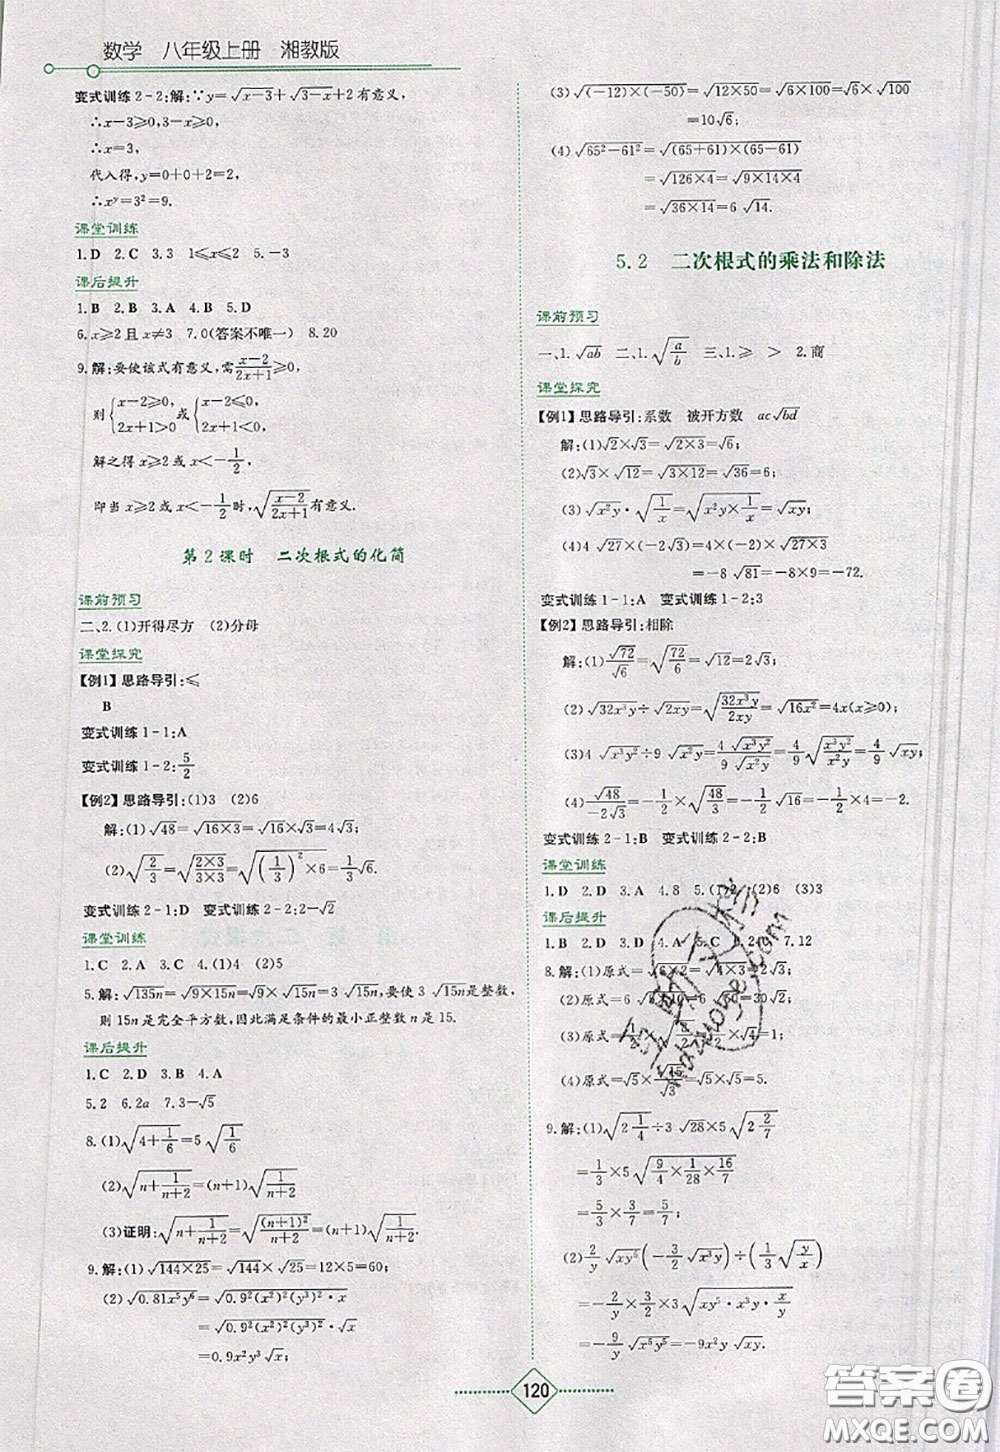 数学 八年级上册 湘教版
变式训练2-2:解:∵y=√(x-3)+√(3-x)+2有意义,
∴x-3≥0,3-x≥0,
∴x=3,
代入得,y=0+0+2=2,
∴x^y=3²=9.
课堂训练
1.D 2.C 3.3 1≤x≤2 5.-3
课后提升
1.B 2.B 3.A 4.B 5.D
6.x≥2且x≠3 7.0(答案不唯一) 8.20
9.解:要使该式有意义,需(x-2)/(2x+1)≥0,
则{x-2≥0 2x+1>0 或{x-2≤0 2x+1<0
解之得x≥2或x<-1/2,
即当x≥2或x<-1/2时,√((x-2)/(2x+1))有意义.
第2课时 二次根式的化简
课前预习
二、2.(1)开得尽方 (2)分母
课堂探究
【例1】思路导引:≤
B
变式训练1-1:A
变式训练1-2:5/2
【例2】思路导引:(1)3 (2)6
解:(1)√48=√(16×3)=√16×√3=4√3;
(2)√(2/3)=√((2×3)/(3×3))=√((1/3)²×6)=1/3√6.
变式训练2-1:D 变式训练2-2:2-√2
课堂训练
1.C 2.A 3.C 4.(1)4 (2)5
5.解:√135n=√(9×15n)=√9×√15n=3√15n,要使3√15n是整数,
则15n是完全平方数,因此满足条件的最小正整数n是15.
课后提升
1.C 2.D 3.B 4.A
5.2 6.2a 7.3-√5
8.(1)√(4+1/6)=5√(1/6)
(2)√(n+1/(n+2))=(n+1)√(1/(n+2))
(3)证明:√(n+1/(n+2))=√((n+1)²/(n+2))=(n+1)√(1/(n+2)).
9.解:(1)√(144×25)=√144×√25=12×5=60;
(2)√(0.81x⁵y⁶)=√(0.9²(x²)²(y³)²·x)
=√(0.9²(x²)²(y³)²)·√x
=0.9x²y³√x;
(3)√((-12)×(-50))=√(12×50)=√(6×100)=√6×√100
=10√6;
(4)√(65²-61²)=√((65+61)×(65-61))
=√(126×4)=√(9×14×4)
=√(36×14)=6√14.
5.2 二次根式的乘法和除法
课前预习
一、1.√ab 二、1.√(a/b) 三、1.≥ > 2.商
课堂探究
【例1】思路导引:系数 被开方数 ac√bd
解:(1)√2×√3=√(2×3)=√6;
(2)√3×√12=√(3×12)=√36=6;
(3)√(x²y)·√(1/x)=√(x²y×1/x)=√xy;
(4)4√27×(-2√3)=4×(-2)×√(27×3)
=-8√81=-8×9=-72.
变式训练1-1:A 变式训练1-2:3
【例2】思路导引:相除
解:(1)√72/√6=√(72/6)=√12=2√3;
(2)√(32x³y)÷√(2xy)=√(32x³y/2xy)=√(16x²)=4x(x≥0);
(3)4√(x³y²)÷9√(x²y)=4√(x³y²)/9√(x²y)=4/9√(x³y²/x²y)=4/9√xy;
(4)√48/(-2√3)=-1/2×√(48/3)=-1/2√16=-1/2×4=-2.
变式训练2-1:B 变式训练2-2:B
课堂训练
1.D 2.D 3.A 4.8 5.(1)2 (2)6 (3)3
课后提升
1.B 2.D 3.D 4.A 5.C 6.2 7.12
8.解:(1)原式=√(6×2)=√(4×3)=2√3.
(2)原式=6 =30√2.
(4)原式=√5×√15/√3=√5×√5=5.
9.解:(1)√(2 1/4)÷3√28×5√(2 2/7)
=1/3×5√(9/4×1/28×16/7)
=5/3×3/7=5/7;
(2)2/y√(xy⁵)·(-3/2√(x³y))÷(1/3√(y/x))
=-2/y×3/2×3√(xy⁵·x³y·x/y)
=-9/y√(x⁵y⁵)=-9x²y√xy.
120
答案圈
MXQE.COM